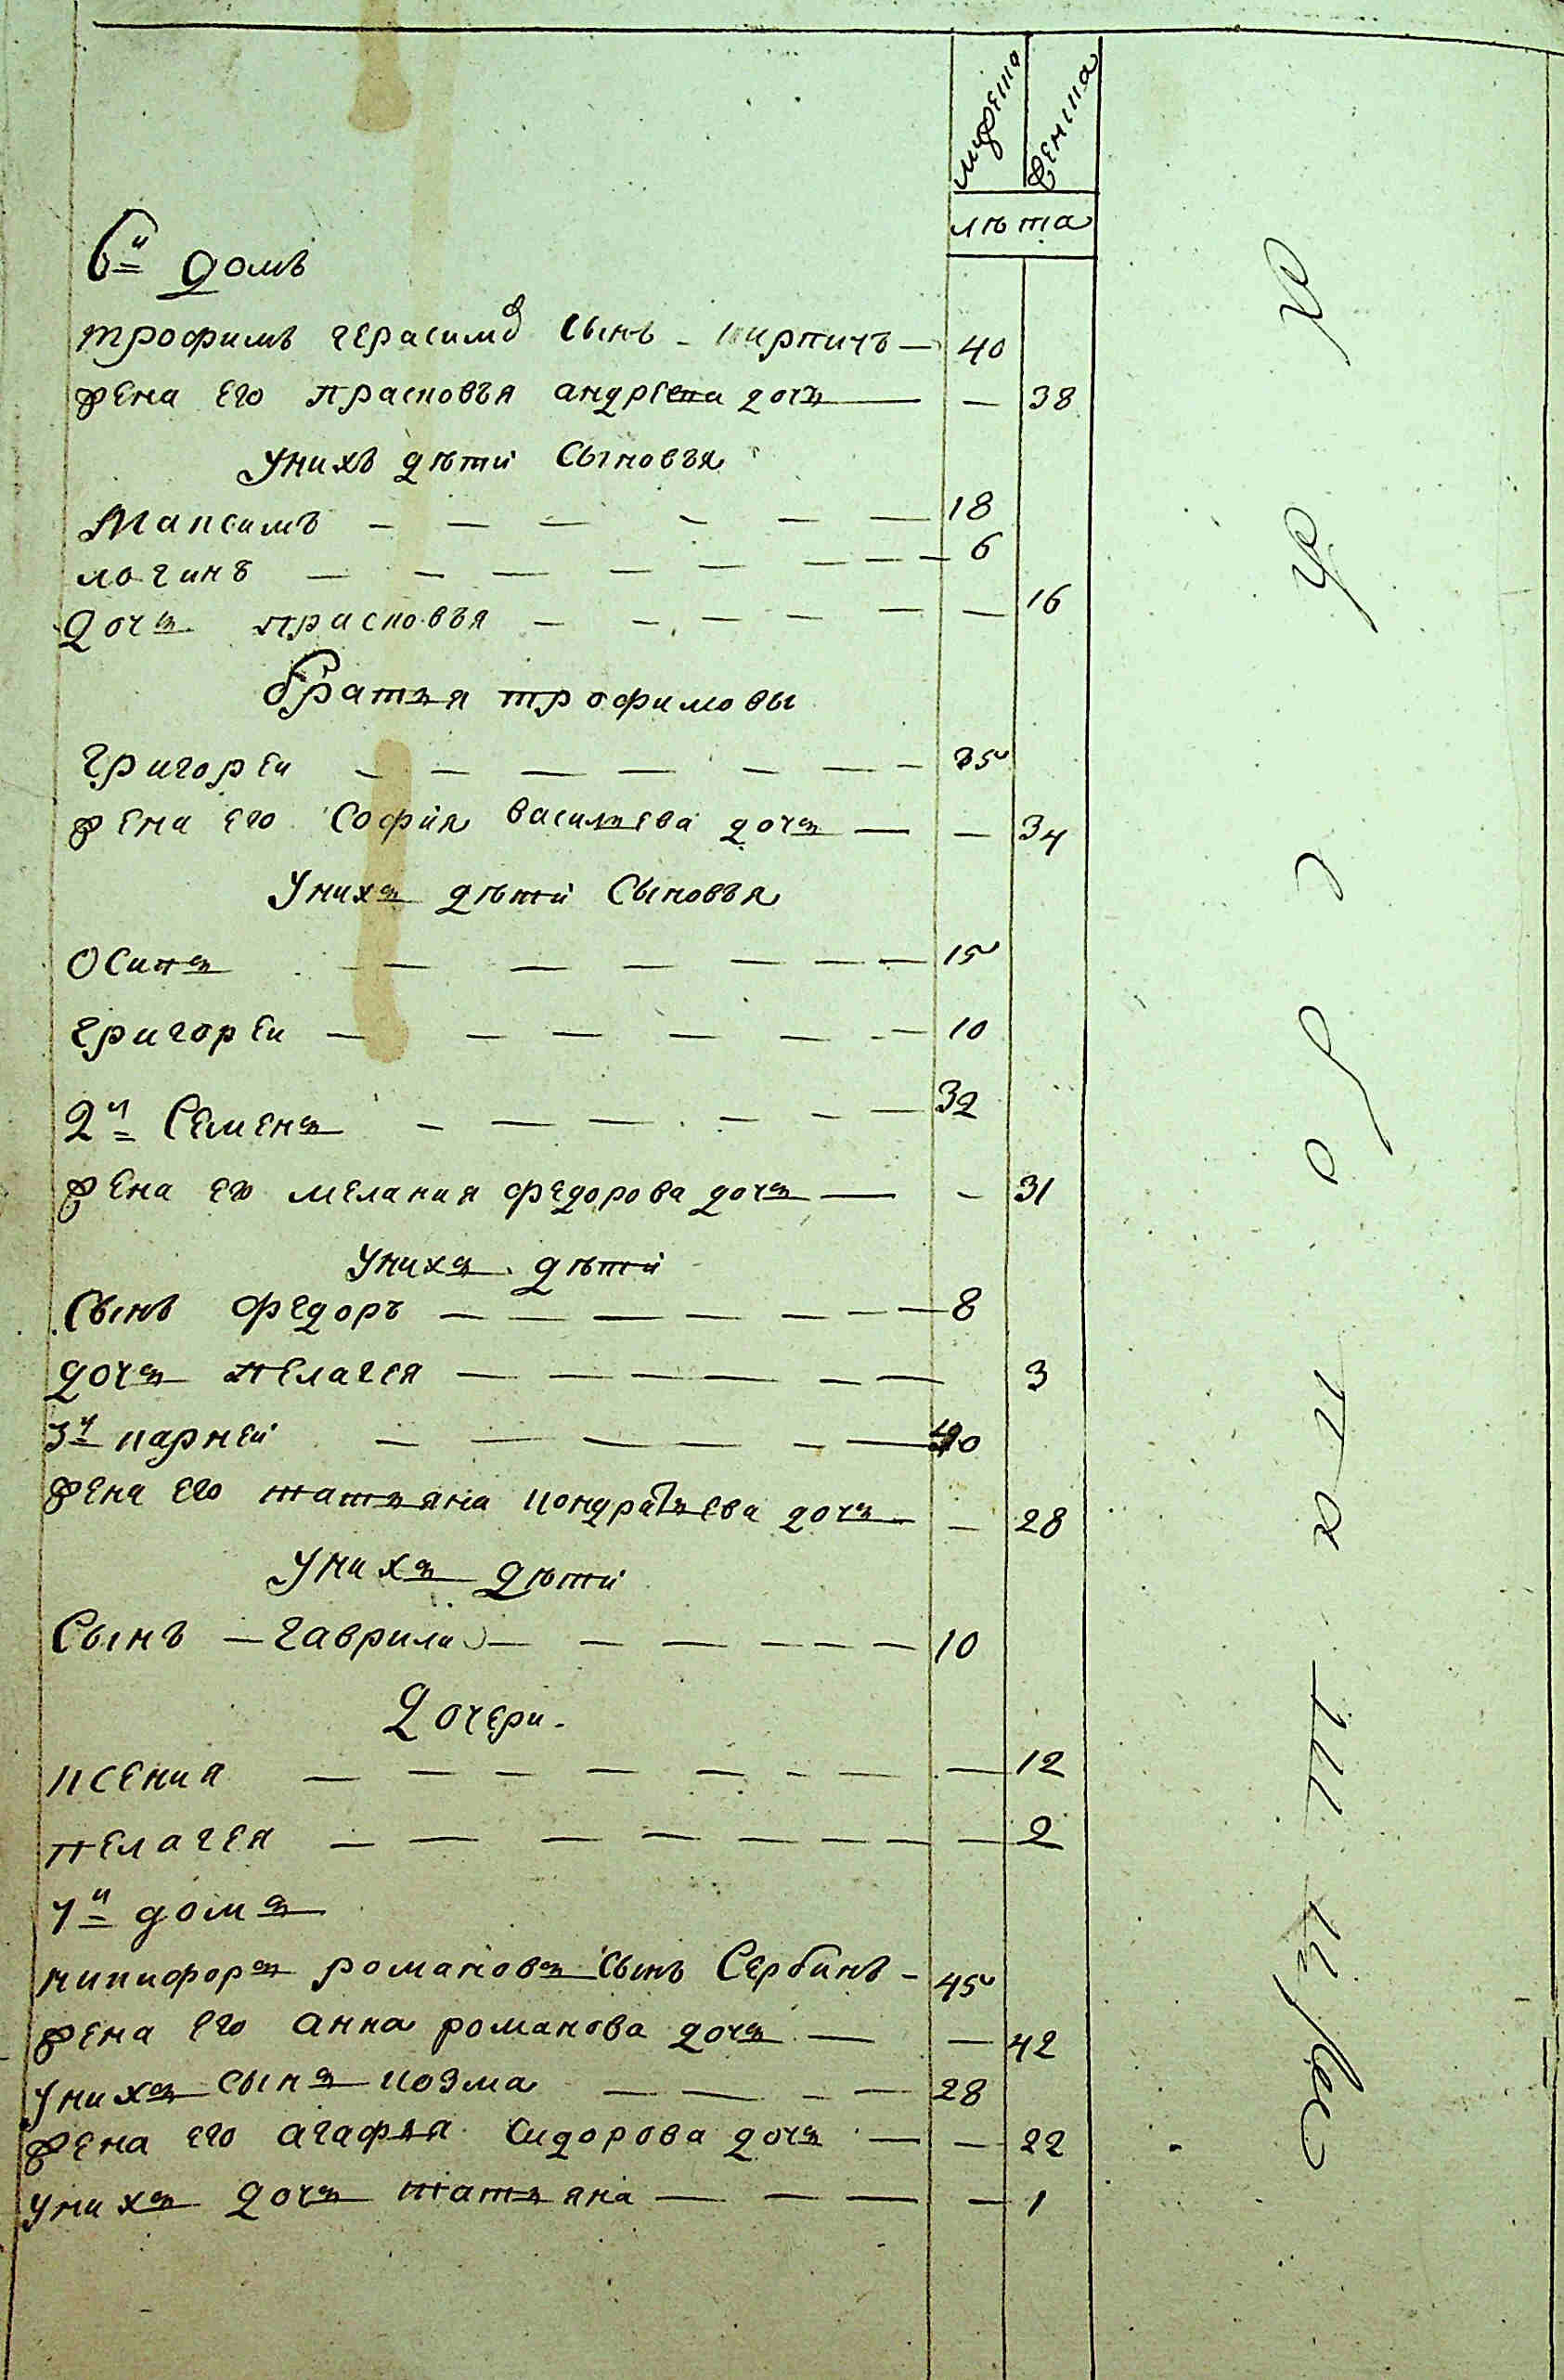 мужеска
женска
лѣта
6й домъ
трофимъ герасимов сынъ - кирпичъ — 40
жена его прасковъя андреева дочь — — 38
унихъ дѣти сыновъя
Максимъ — 18
логинъ — 6
дочь прасковъя — 16
братья трофимовы
григореи — 35
жена его софия васильева дочь — — 34
унихъ дѣти сыновъя
осипъ — 15
григореи — 10
2й семенъ — 32
жена его мелания федорова дочь — — 31
унихъ дѣти
сынъ федоръ — 8
дочь пелагея — 3
3й карней — 40
жена его татьяна кондратьева дочь — — 28
унихъ дѣти
сынъ — гаврила — 10
дочери.
ксения — 12
пелагея — 2
7й домъ
никифоръ романовъ сынъ сербинъ - 45
жена его анна романова дочь — — 42
унихъ сынъ козма — 28
жена его агафья сидорова дочь — — 22
унихъ дочь татьяна — — 1